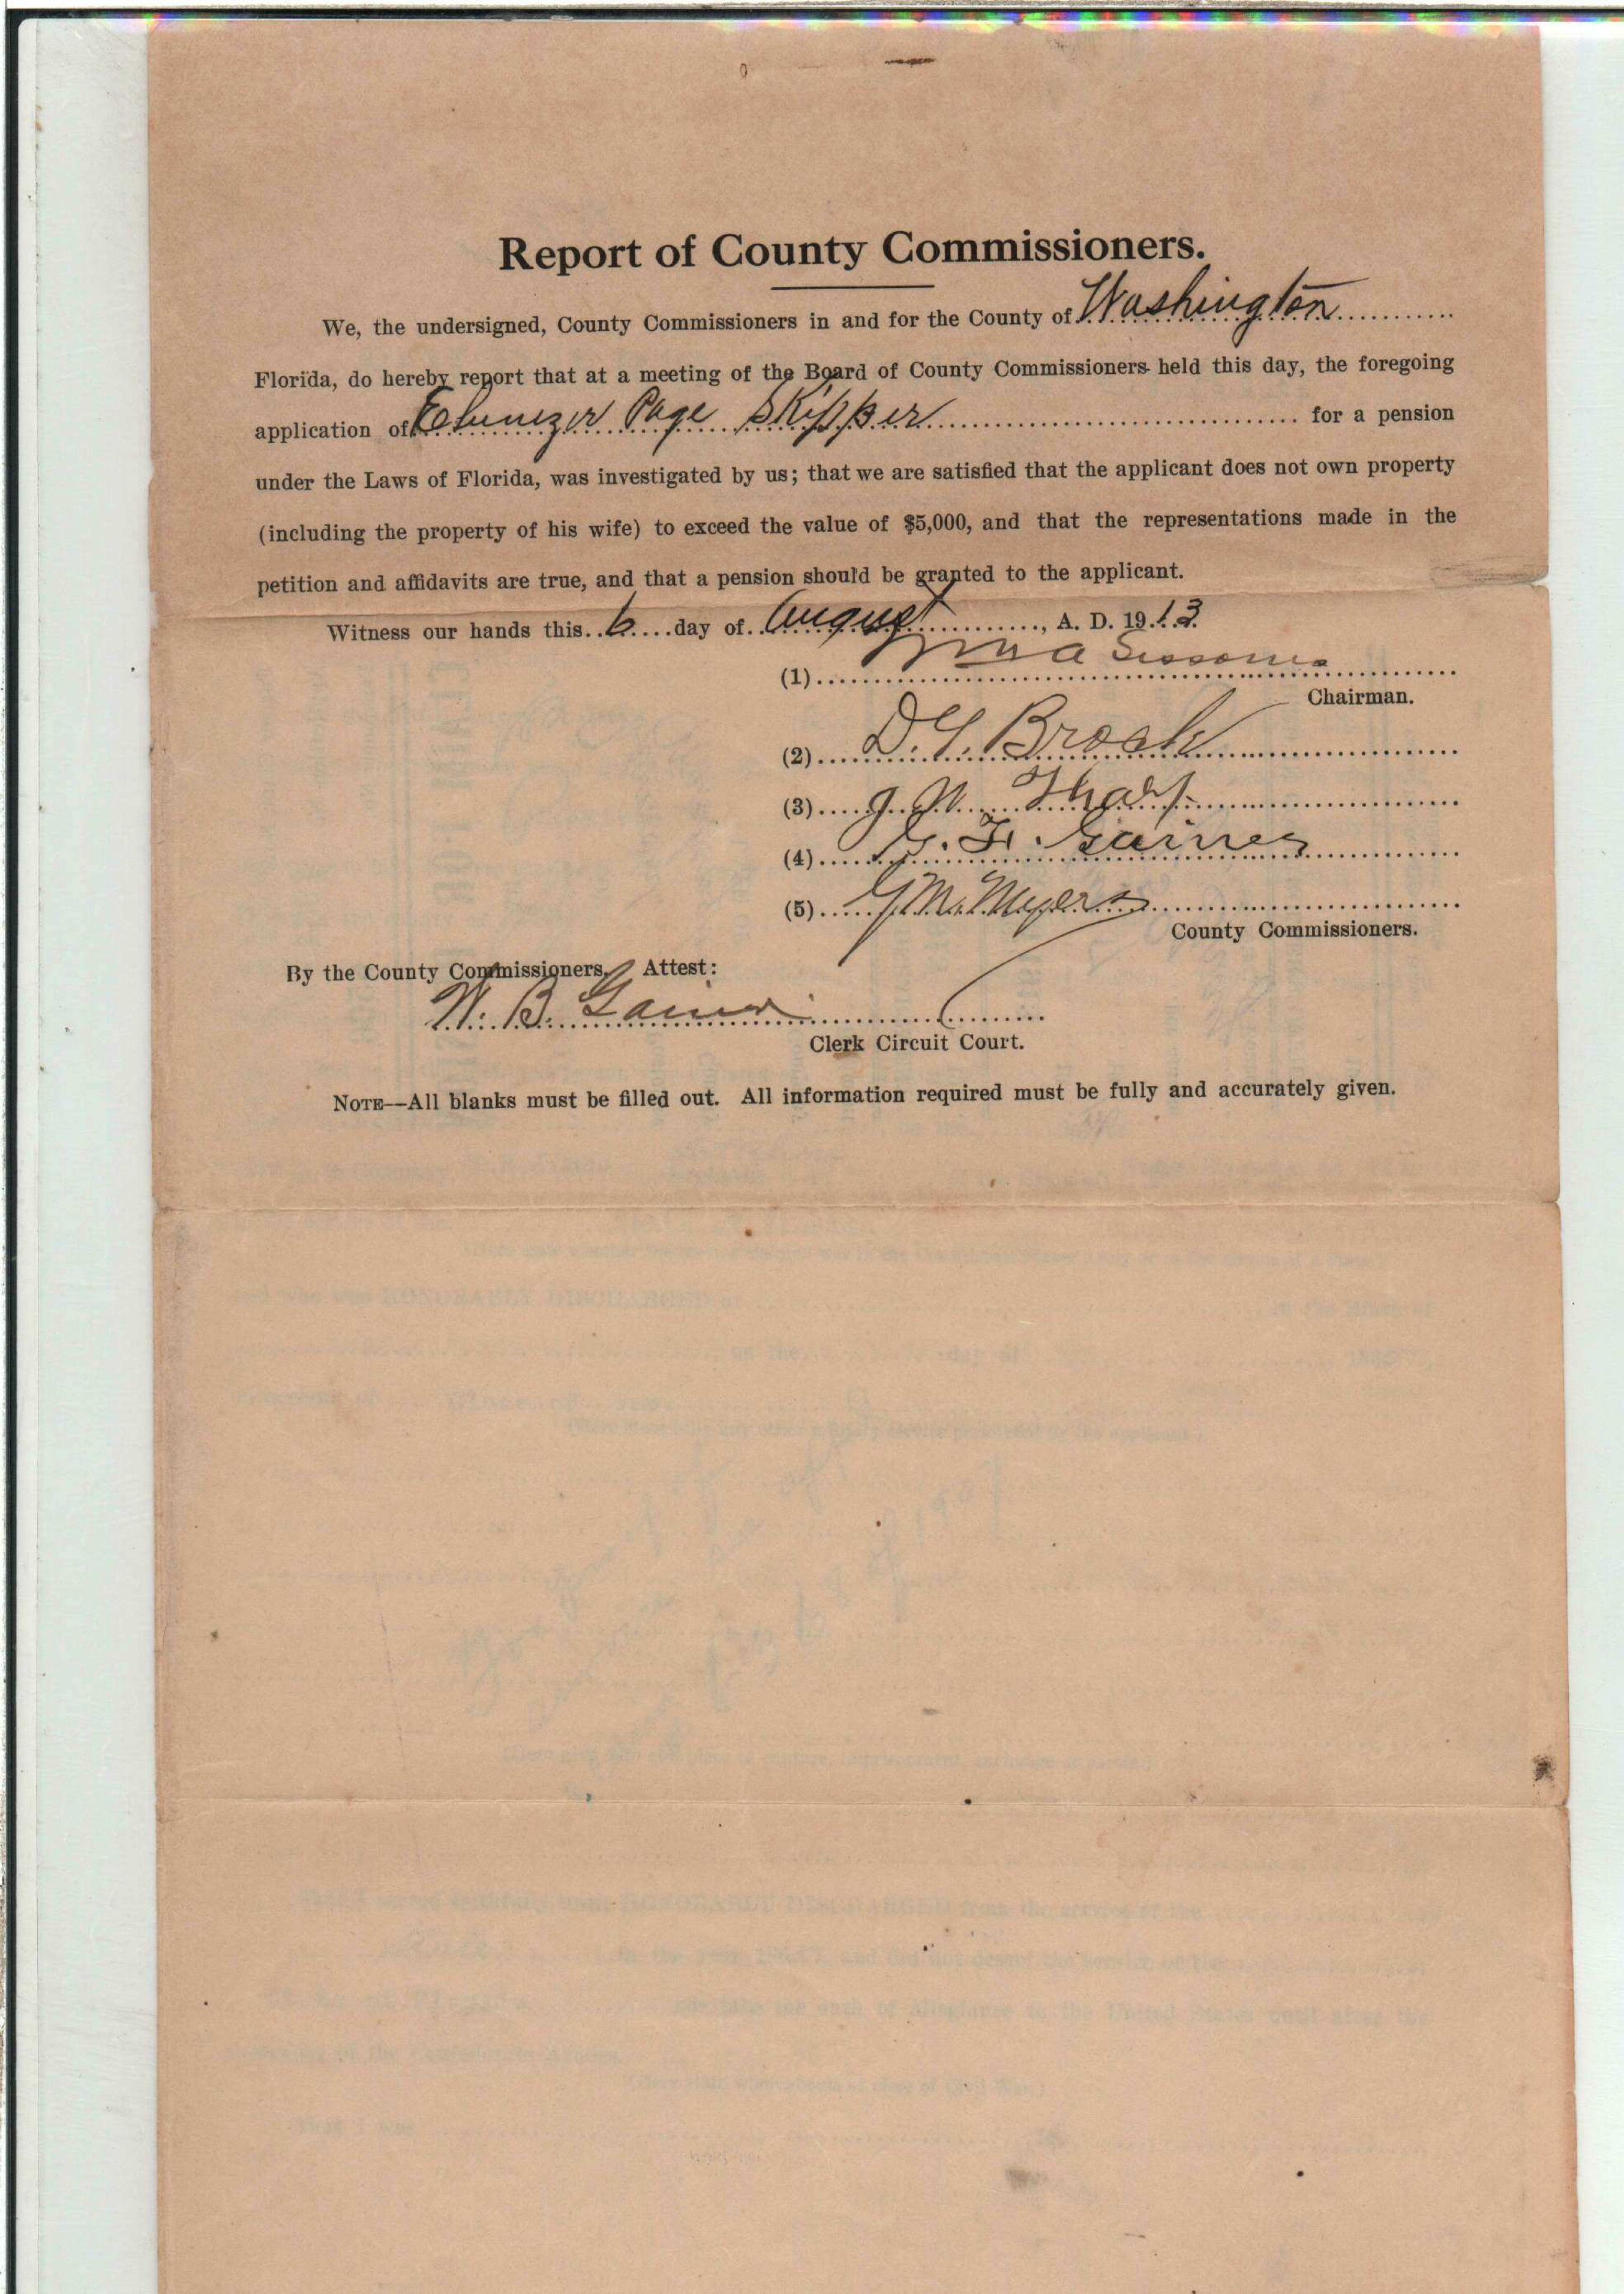 Report of County Commissioners.
We, the undersigned, County Commissioners in and for the County of Washington
Florida, do hereby report that at a meeting of the Board of County Commissioners held this day, the foregoing
application of Ebenezer Page Skipper for a pension
under the Laws of Florida, was investigated by us; that we are satisfied that the applicant does not own property
(including the property of his wife) to exceed the value of $5,000, and that the representations made in the
petition and affidavits are true, and that a pension should be granted to the applicant.
Witness our hands this 6 day of August, A. D. 1913
(1)
Chairman.
(2) Brock
(3) J. W.
(4) F. Gainer
(5) Myers
County Commissioners.
By the County Commissioners, Attest:
W. B. Gainer
Clerk Circuit Court.
NOTE—All blanks must be filled out. All information required must be fully and accurately given.